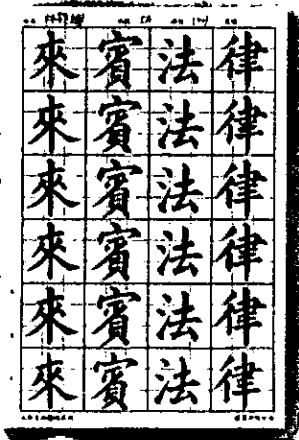 律律律律律律
法法法法法法
賓賓賓賓賓賓
來來來來來來